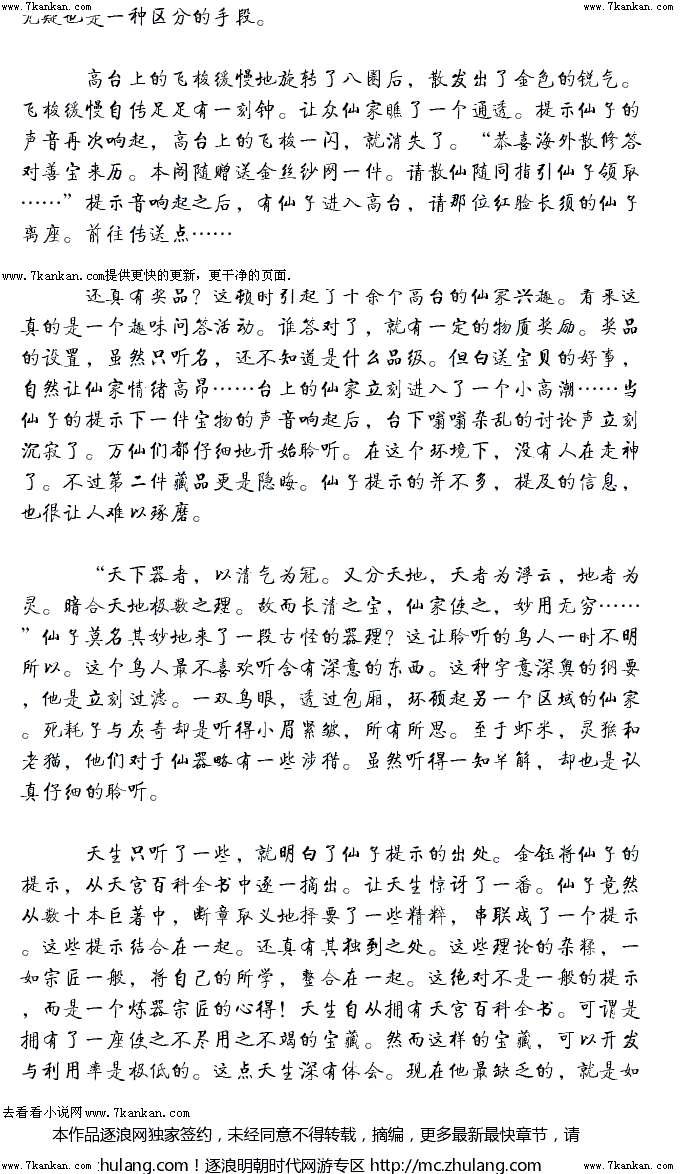 www.7kankan.com www.7kankan.com
无疑也是一种区分的手段。
高台上的飞梭缓慢地旋转了八圈后，散发出了金色的锐气。
飞梭缓慢自传足足有一刻钟。让众仙家瞧了一个通透。提示仙子的
声音再次响起，高台上的飞梭一闪，就消失了。“恭喜海外散修答
对善宝来历。本阁随赠送金丝纱网一件。请散仙随同指引仙子领取
……”提示音响起之后，有仙子进入高台，请那位红脸长须的仙子
离座。前往传送点……
www.7kankan.com提供更快的更新，更干净的页面.
还真有奖品？这顿时引起了十余个高台的仙家兴趣。看来这
真的是一个趣味问答活动。谁答对了，就有一定的物质奖励。奖品
的设置，虽然只听名，还不知道是什么品级。但白送宝贝的好事，
自然让仙家情绪高昂……台上的仙家立刻进入了一个小高潮……当
仙子的提示下一件宝物的声音响起后，台下嗡嗡杂乱的讨论声立刻
沉寂了。万仙们都仔细地开始聆听。在这个环境下，没有人在走神
了。不过第二件藏品更是隐晦。仙子提示的并不多，提及的信息，
也很让人难以琢磨。
“天下器者，以清气为冠。又分天地，天者为浮云，地者为
灵。暗合天地极数之理。故而长清之宝，仙家使之，妙用无穷……
”仙子莫名其妙地来了一段古怪的器理？这让聆听的鸟人一时不明
所以。这个鸟人最不喜欢听含有深意的东西。这种字意深奥的纲要
，他是立刻过滤。一双鸟眼，透过包厢，环顾起另一个区域的仙家
。死耗子与灰奇却是听得小眉紧皱，所有所思。至于虾米，灵猴和
老猫，他们对于仙器略有一些涉猎。虽然听得一知半解，却也是认
真仔细的聆听。
天生只听了一些，就明白了仙子提示的出处。金钰将仙子的
提示，从天宫百科全书中逐一摘出。让天生惊讶了一番。仙子竟然
从数十本巨著中，断章取义地择要了一些精粹，串联成了一个提示
。这些提示结合在一起。还真有其独到之处。这些理论的杂糅，一
如宗匠一般，将自己的所学，整合在一起。这绝对不是一般的提示
，而是一个炼器宗匠的心得！天生自从拥有天宫百科全书。可谓是
拥有了一座使之不尽用之不竭的宝藏。然而这样的宝藏，可以开发
与利用率是极低的。这点天生深有体会。现在他最缺乏的，就是如
去看看小说网www.7kankan.com
本作品逐浪网独家签约，未经同意不得转载，摘编，更多最新最快章节，请
www.7kankan.com :hulang.com！逐浪明朝时代网游专区http://mc.zhulang.com www.7kankan.com